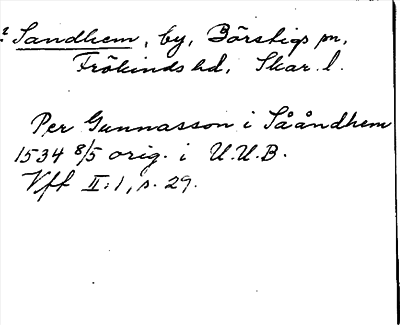 ? Sandhem, by, Börstigs sn,
Frökinds hd, Skar. l.
Per Gunnasson i Sååndhem
1534 8/5 orig. i U.U.B.
Vft II:1, s. 29.